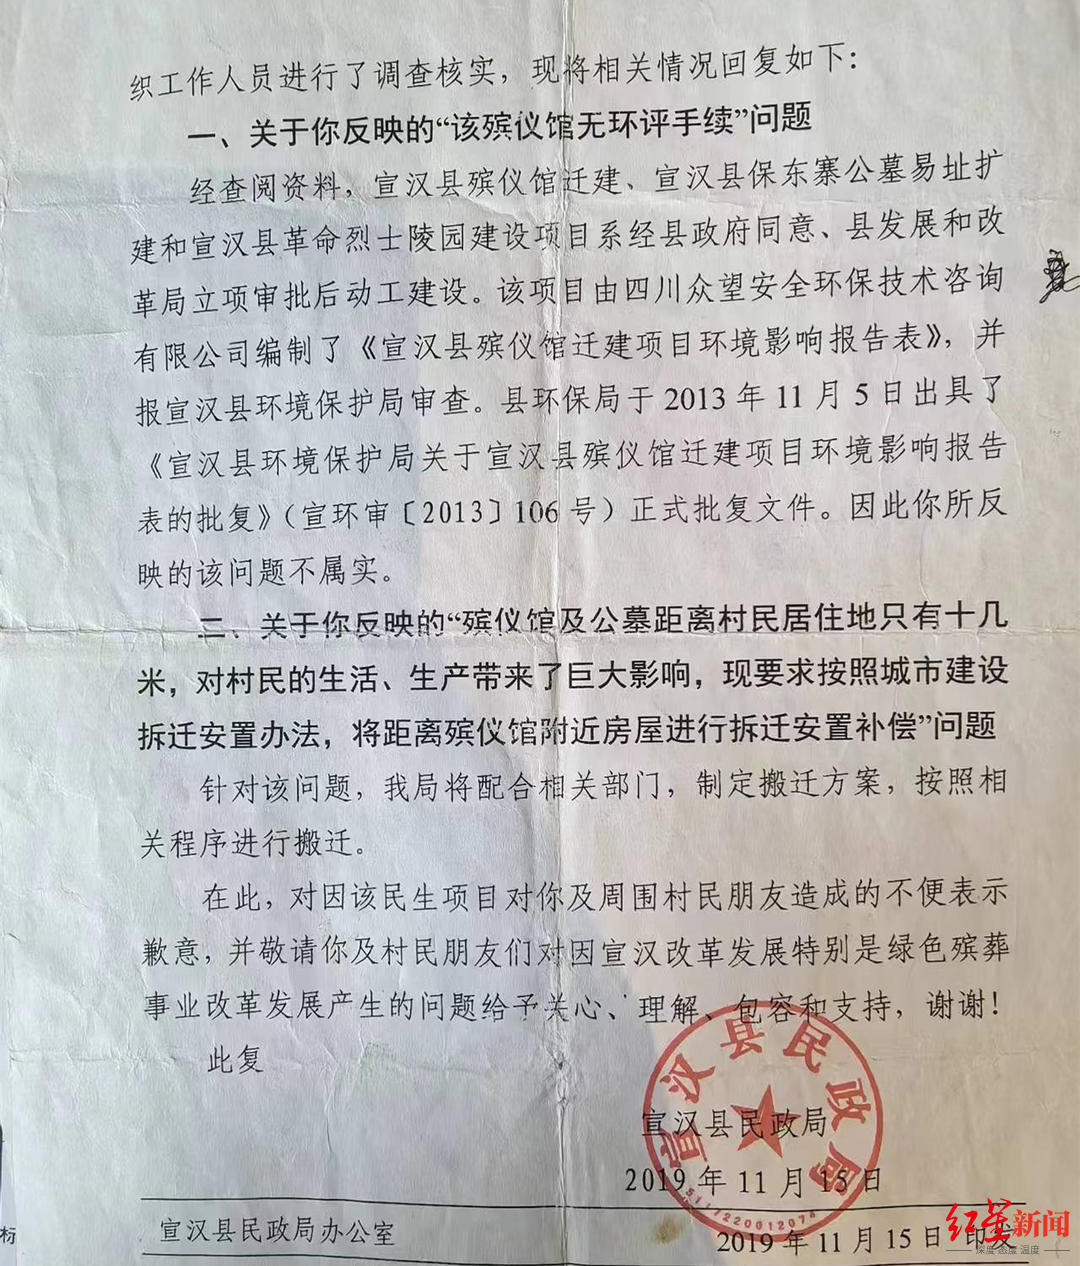 织工作人员进行了调查核实，现将相关情况回复如下：
一、关于你反映的“该殡仪馆无环评手续”问题
经查阅资料，宣汉县殡仪馆迁建、宣汉县保东寨公墓易址扩
建和宣汉县革命烈士陵园建设项目系经县政府同意、县发展和改
革局立项审批后动工建设。该项目由四川众望安全环保技术咨询
有限公司编制了《宣汉县殡仪馆迁建项目环境影响报告表》，并
报宣汉县环境保护局审查。县环保局于2013年11月5日出具了
《宣汉县环境保护局关于宣汉县殡仪馆迁建项目环境影响报告
表的批复》（宣环审〔2013〕106号）正式批复文件。因此你所反
映的该问题不属实。
二、关于你反映的“殡仪馆及公墓距离村民居住地只有十几
米，对村民的生活、生产带来了巨大影响，现要求按照城市建设
拆迁安置办法，将距离殡仪馆附近房屋进行拆迁安置补偿”问题
针对该问题，我局将配合相关部门，制定搬迁方案，按照相
关程序进行搬迁。
在此，对因该民生项目对你及周围村民朋友造成的不便表示
歉意，并敬请你及村民朋友们对因宣汉改革发展特别是绿色殡葬
事业改革发展产生的问题给予关心、理解、包容和支持，谢谢！
此复
宣汉县民政局
宣汉县民政局
2019年11月15日
5117220012074
宣汉县民政局办公室
2019年11月15日 印发
红星新闻
深度 态度 温度